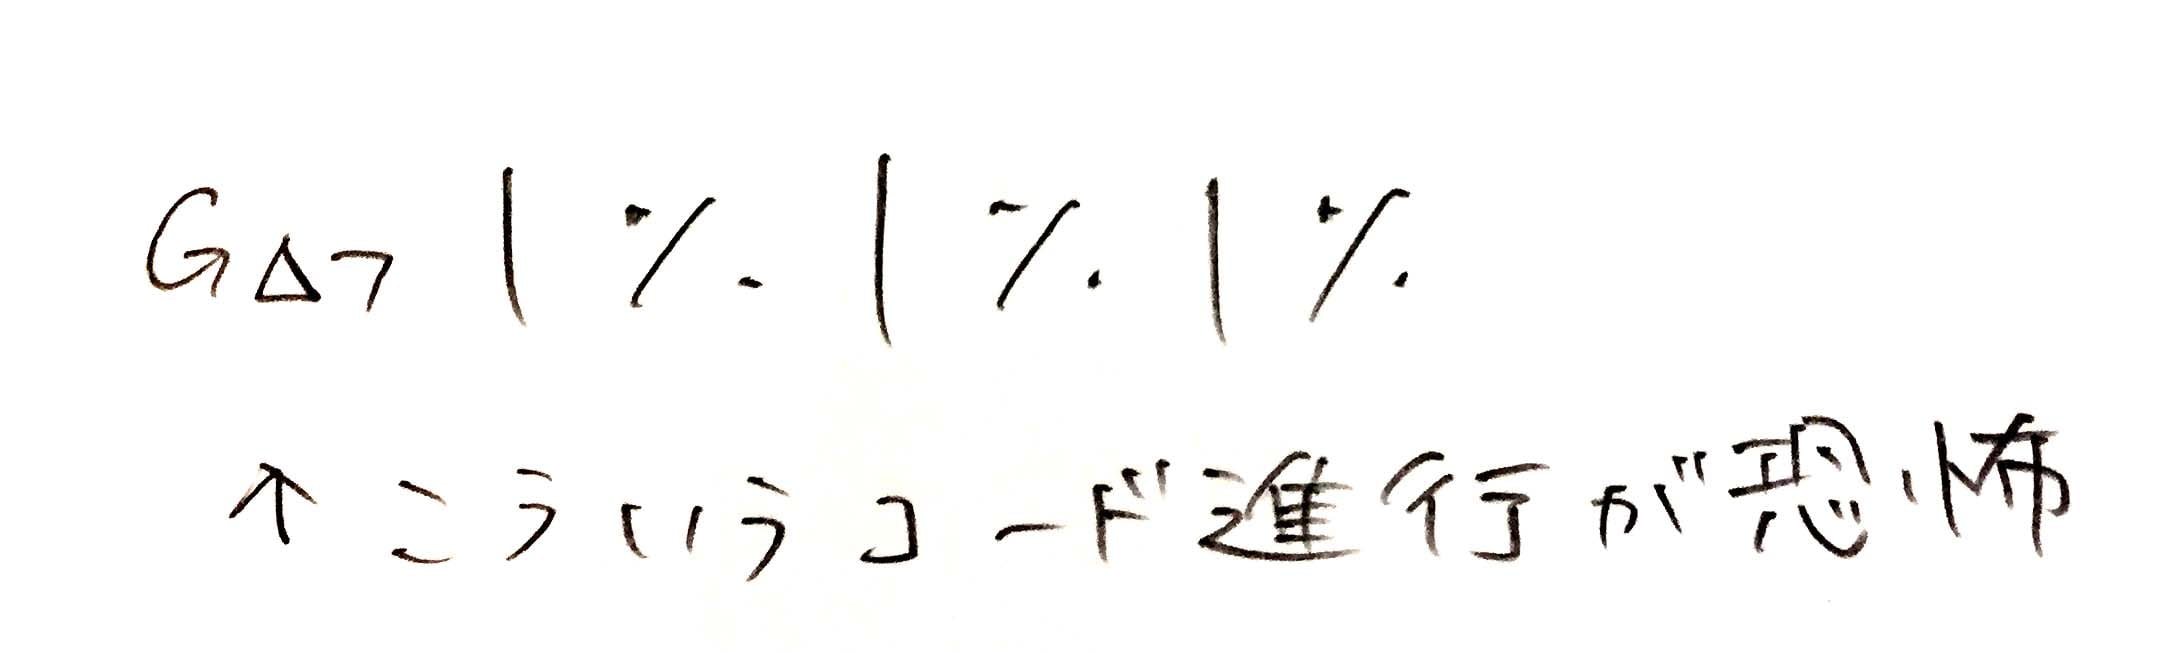 G△7 | % | % | %
↑こういうコード進行が恐怖